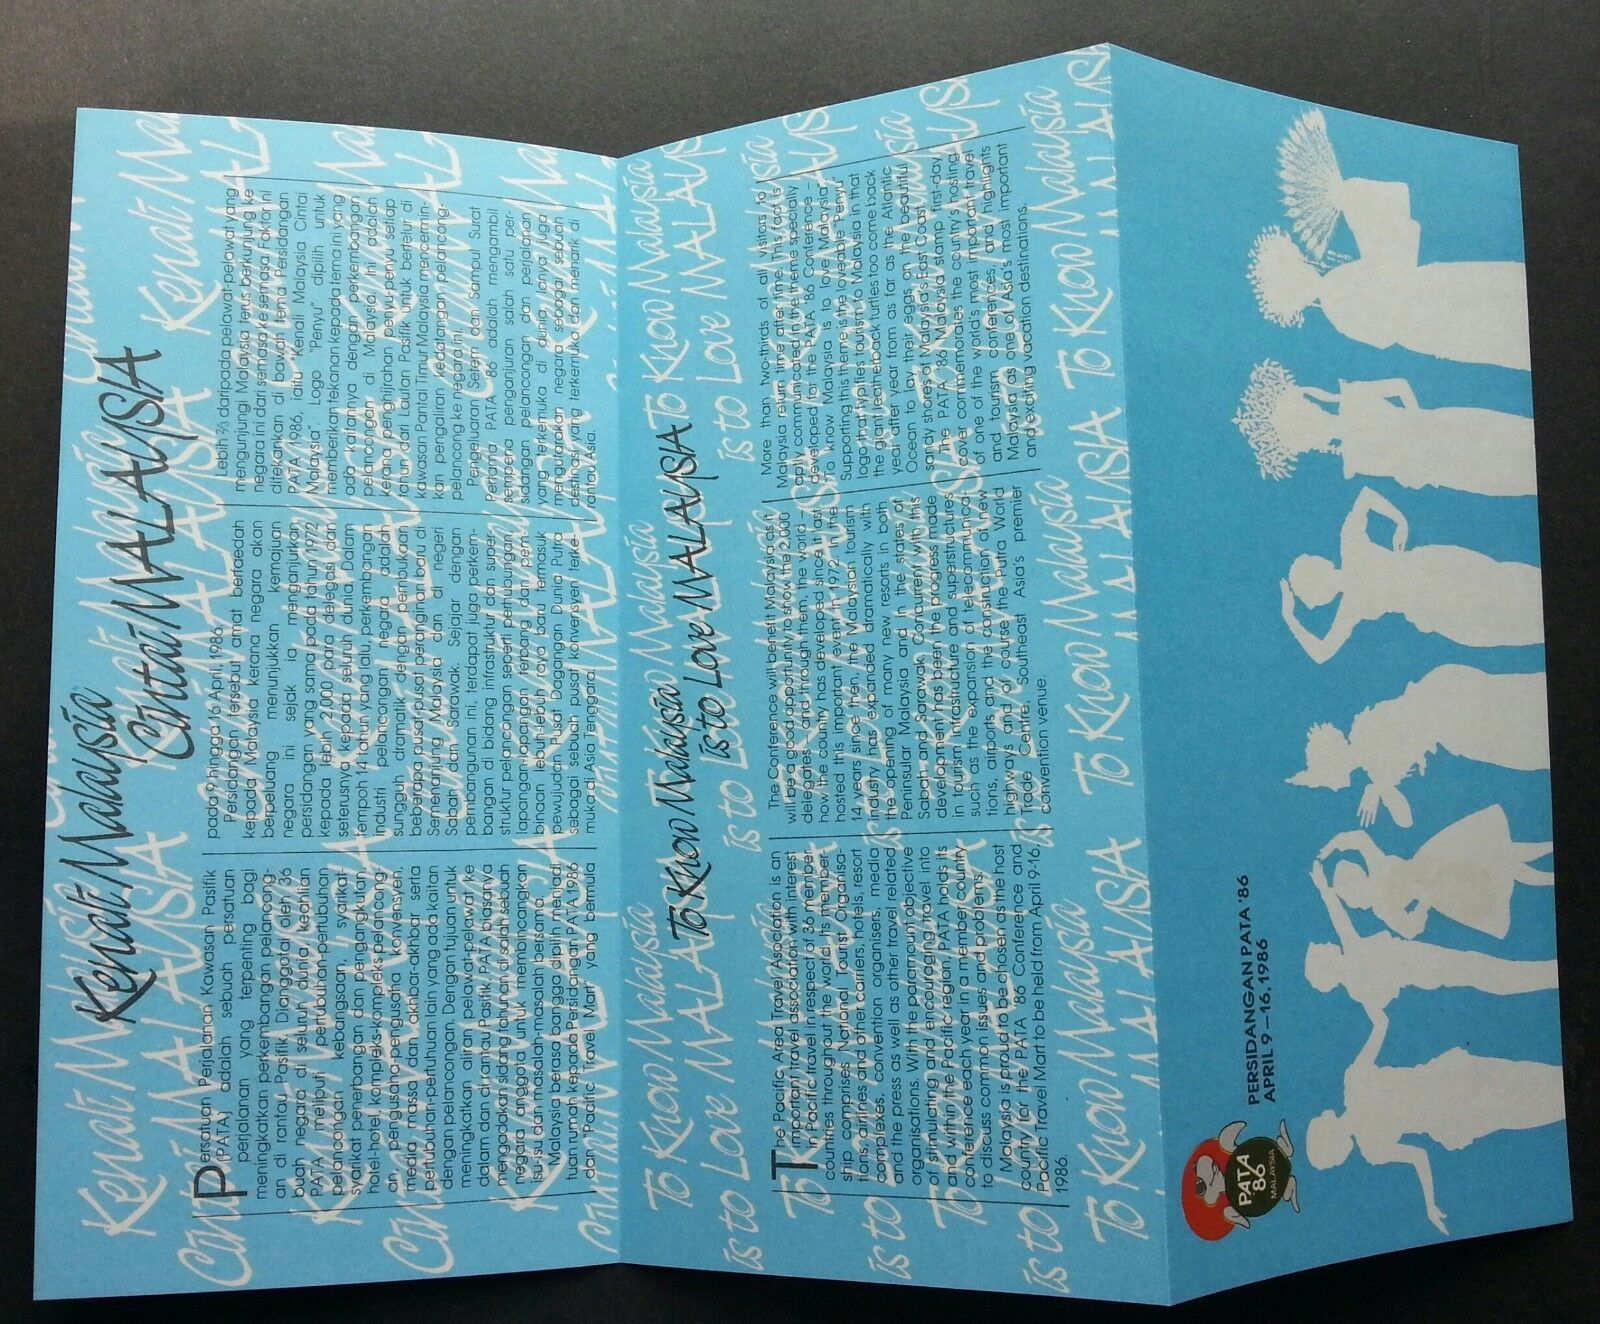 Kenali Malaysia
Cintai MALAYSIA
Persatuan Perjalanan Kawasan Pasifik
(PATA) adalah sebuah persatuan
perjalanan yang terpenting bagi
meningkatkan perkembangan pelancong-
an di rantau Pasifik. Dianggotai oleh 36
buah negara di seluruh dunia, keahlian
PATA meliputi pertubuhan-pertubuhan
pelancongan kebangsaan, syarikat-
syarikat penerbangan dan pengangkutan,
hotel-hotel, kompleks-kompleks pelancong-
an, pengusaha-pengusaha konvensyen,
media massa dan akhbar-akhbar serta
pertubuhan-pertubuhan lain yang ada kaitan
dengan pelancongan. Dengan tujuan untuk
meningkatkan aliran pelawat-pelawat ke
dalam dan di rantau Pasifik, PATA biasanya
mengadakan sidang tahunan di salah sebuah
negara anggota untuk membincangkan
isu-isu dan masalah-masalah bersama.
Malaysia berasa bangga dipilih menjadi
tuan rumah kepada Persidangan PATA 1986
dan "Pacific Travel Mart" yang bermula
pada 9 hingga 16 April, 1986.
Persidangan tersebut amat berfaedah
kepada Malaysia kerana negara akan
berpeluang menunjukkan kemajuan
negara ini sejak ia menganjurkan
persidangan yang sama pada tahun 1972
kepada lebih 2,000 para delegasi dan
seterusnya kepada seluruh dunia. Dalam
tempoh 14 tahun yang lalu, perkembangan
industri pelancongan negara adalah
sungguh dramatik dengan pembukaan
beberapa pusat-pusat peranginan baru di
Semenanjung Malaysia dan di negeri
Sabah dan Sarawak. Sejajar dengan
pembangunan ini, terdapat juga perkem-
bangan di bidang infrastruktur dan super-
struktur pelancongan seperti perhubungan,
lapangan-lapangan terbang dan pem-
binaan lebuh-lebuh raya baru termasuk
pewujudan Pusat Dagangan Dunia Putra
sebagai sebuah pusat konvensyen terke-
muka di Asia Tenggara.
Lebih ⅔ daripada pelawat-pelawat yang
mengunjungi Malaysia terus berkunjung ke
negara ini dari semasa ke semasa. Faktor ini
ditekankan di bawah tema Persidangan
PATA 1986, iaitu "Kendli Malaysia Cintai
Malaysia". Logo "Penyu" dipilih untuk
memberikan tekanan kepada tema ini yang
ada kaitannya dengan perkembangan
pelancongan di Malaysia. Ini adalah
kerana penghijrahan penyu-penyu setiap
tahun dari Lautan Pasifik untuk bertelur di
kawasan Pantai Timur Malaysia mencermin-
kan pengaliran kedatangan pelancong-
pelancong ke negara ini.
Pengeluaran Setem dan Sampul Surat
Pertama PATA '86 adalah mengambil
sempena penganjuran salah satu per-
sidangan pelancongan dan perjalanan
yang terkemuka di dunia. Ianya juga
mengutarakan negara sebagai sebuah
destinasi yang terkemuka dan menarik di
rantau Asia.
To Know Malaysia
is to Love MALAYSIA
The Pacific Area Travel Association is an
important travel association with interest
in Pacific travel in respect of 36 member
countries throughout the world. Its member-
ship comprises National Tourist Organisa-
tions, airlines and other carriers, hotels, resort
complexes, convention organisers, media
and the press as well as other travel related
organisations. With the paramount objective
of stimulating and encouraging travel into
and within the Pacific region, PATA holds its
conference each year in a member country
to discuss common issues and problems.
Malaysia is proud to be chosen as the host
country for the PATA '86 Conference and
Pacific Travel Mart to be held from April 9-16,
1986.
The Conference will benefit Malaysia as it
will be a good opportunity to show the 2,000
delegates and through them, the world –
how the country has developed since it last
hosted this important event in 1972. In the
14 years since then, the Malaysian tourism
industry has expanded dramatically with
the opening of many new resorts in both
Peninsular Malaysia and in the states of
Sabah and Sarawak. Concurrent with this
development has been the progress made
in tourism infrastructure and superstructures
such as the expansion of telecommunica-
tions, airports and the construction of new
highways and of course the Putra World
Trade Centre, Southeast Asia's premier
convention venue.
More than two-thirds of all visitors to
Malaysia return time after time. This fact is
aptly communicated in the theme specially
developed for the PATA '86 Conference –
"To Know Malaysia is to love Malaysia".
Supporting this theme is the loveable "Penyu"
logo that typifies tourism to Malaysia in that
the giant leatherback turtles too come back
year after year from as far as the Atlantic
Ocean to lay their eggs on the beautiful
sandy shores of Malaysia's East Coast.
The PATA '86 Malaysia stamp first-day
cover commemorates the country's hosting
of one of the world's most important travel
and tourism conferences, and highlights
Malaysia as one of Asia's most important
and exciting vacation destinations.
PATA
86
MALAYSIA
PERSIDANGAN PATA '86
APRIL 9–16, 1986